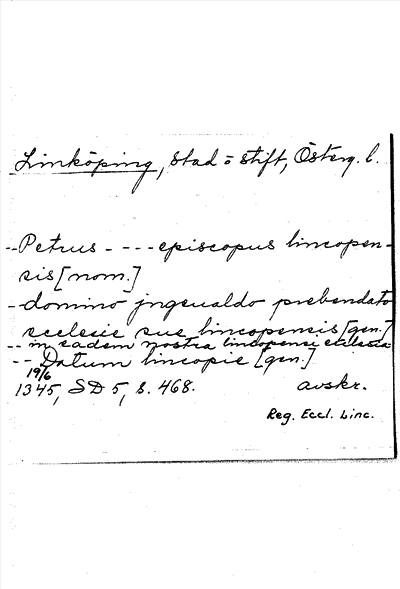 Linköping, stad o stift, Österg. l.
-- Petrus - --- episcopus lincopen-
sis [nom.]
- domino jngeualdo prebendato
ecclesie sue lincopensis [gen.]
-- in eadem nostra lincopensi ecclesia
-- Datum lincopie [gen.]
19/6
1345, SD 5, s. 468. avskr.
Reg. Eccl. Linc.